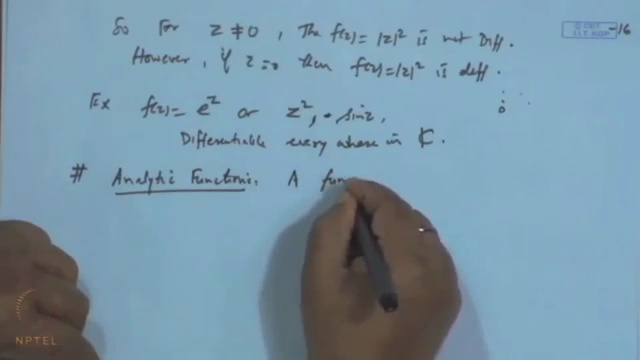 So For z ≠ 0, The f(z) = |z|² is not Diff.
However, if z = 0 then f(z) = |z|² is diff.
Ex f(z) = e^z or z², sin z,
Differentiable every where in ℂ.
# Analytic Function: A fun
© CET
I.I.T. KGP
-16
NPTEL